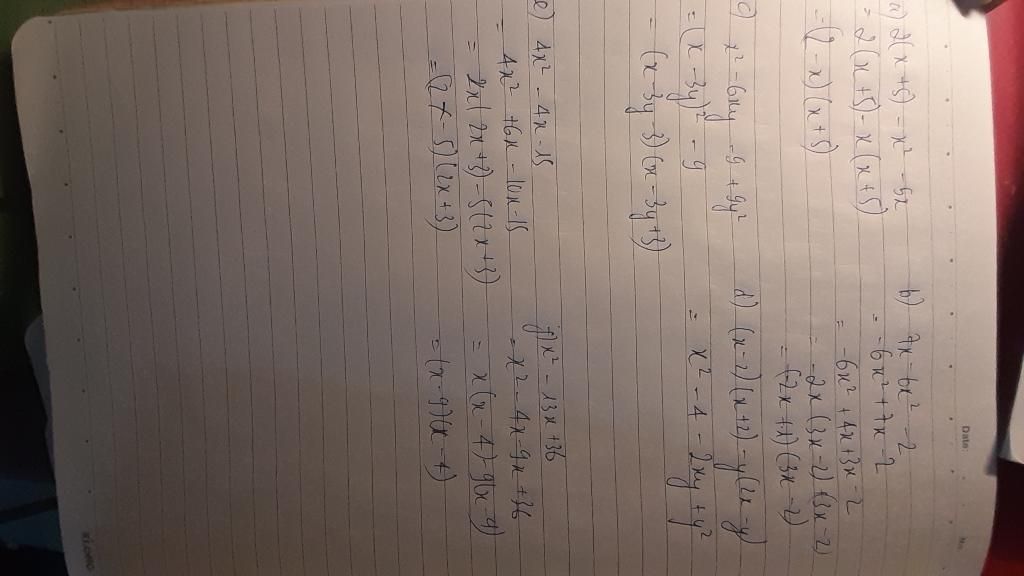 Date:
No.
a) 2(x+5) - x² - 5x
= 2(x+5) - x(x+5)
= (2 - x)(x+5)
b) 7x - 6x² - 2
= -6x² + 7x - 2
= -6x² + 4x + 3x - 2
= -2x(3x-2) + (3x-2)
= (-2x+1)(3x-2)
c) x² - 6xy - 9 + 9y²
= (x - 3y)² - 9
= (x - 3y - 3)(x - 3y + 3)
d) (x-2)(x+2) - y(2x-y)
= x² - 4 - 2xy + y²
e) 4x² - 4x - 15
= 4x² + 6x - 10x - 15
= 2x(2x+3) - 5(2x+3)
= (2x - 5)(2x+3)
f) x² - 13x + 36
= x² - 4x - 9x + 36
= x(x - 4) - 9(x - 4)
= (x - 9)(x - 4)